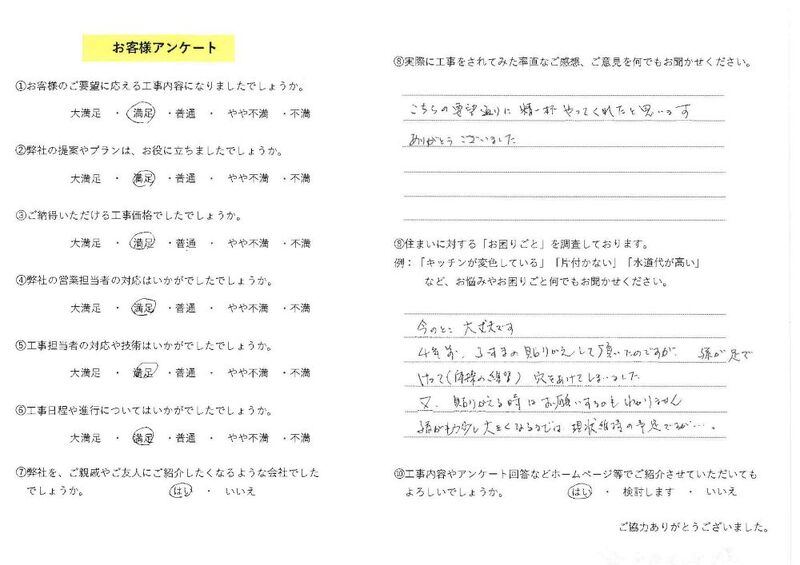 お客様アンケート
①お客様のご要望に応える工事内容になりましたでしょうか。
大満足 ・ 満足 ・普通 ・ やや不満 ・不満
②弊社の提案やプランは、お役に立ちましたでしょうか。
大満足 ・ 満足 ・普通 ・ やや不満 ・不満
③ご納得いただける工事価格でしたでしょうか。
大満足 ・ 満足 ・普通 ・ やや不満 ・不満
④弊社の営業担当者の対応はいかがでしたでしょうか。
大満足 ・ 満足 ・普通 ・ やや不満 ・不満
⑤工事担当者の対応や技術はいかがでしたでしょうか。
大満足 ・ 満足 ・普通 ・ やや不満 ・不満
⑥工事日程や進行についてはいかがでしたでしょうか。
大満足 ・ 満足 ・普通 ・ やや不満 ・不満
⑦弊社を、ご親戚やご友人にご紹介したくなるような会社でした
でしょうか。 はい ・ いいえ
⑧実際に工事をされてみた率直なご感想、ご意見を何でもお聞かせください。
こちらの要望通りに精一杯やってくれたと思います
ありがとうございました
⑨住まいに対する「お困りごと」を調査しております。
例：「キッチンが変色している」「片付かない」「水道代が高い」
など、お悩みやお困りごと何でもお聞かせください。
今のとこ 大丈夫です
4年前、ふすまの貼りかえして頂いたのですが、孫が足で
けって(体操の練習) 穴をあけてしまいました
又、貼りかえる時はお願いするかもわかりません
孫がもう少し大きくなるまでは 現状維持の予定ですが…。
⑩工事内容やアンケート回答などホームページ等でご紹介させていただいても
よろしいでしょうか。 はい ・ 検討します ・ いいえ
ご協力ありがとうございました。